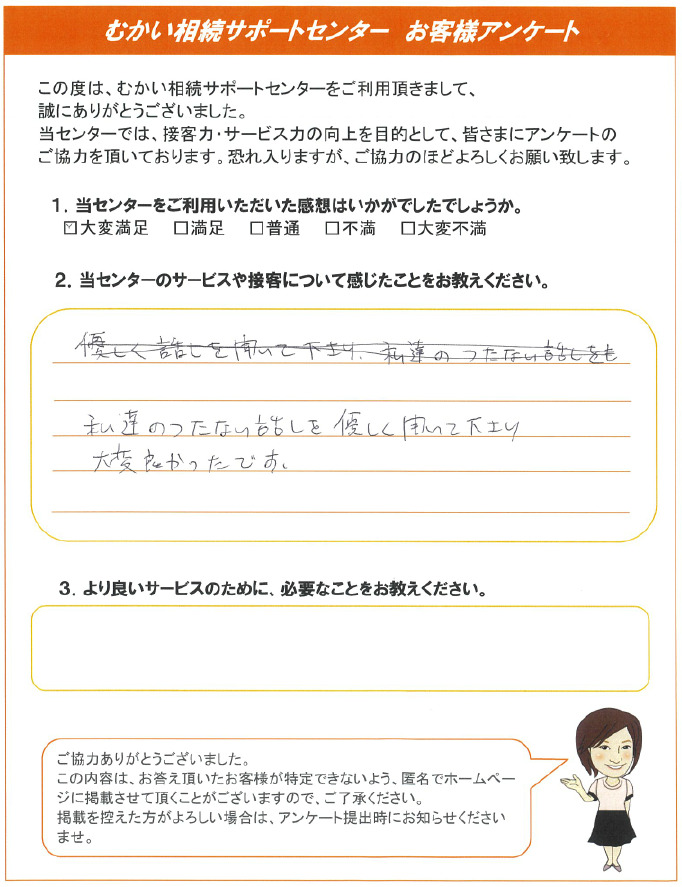 むかい相続サポートセンター　お客様アンケート
この度は、むかい相続サポートセンターをご利用頂きまして、
誠にありがとうございました。
当センターでは、接客力・サービス力の向上を目的として、皆さまにアンケートの
ご協力を頂いております。恐れ入りますが、ご協力のほどよろしくお願い致します。
１．当センターをご利用いただいた感想はいかがでしたでしょうか。
☑大変満足　□満足　□普通　□不満　□大変不満
２．当センターのサービスや接客について感じたことをお教えください。
優しく話しを聞いて下さり、私達のつたない話しをも
私達のつたない話しを優しく聞いて下さり
大変良かったです。
３．より良いサービスのために、必要なことをお教えください。
ご協力ありがとうございました。
この内容は、お答え頂いたお客様が特定できないよう、匿名でホームペー
ジに掲載させて頂くことがございますので、ご了承ください。
掲載を控えた方がよろしい場合は、アンケート提出時にお知らせください
ませ。